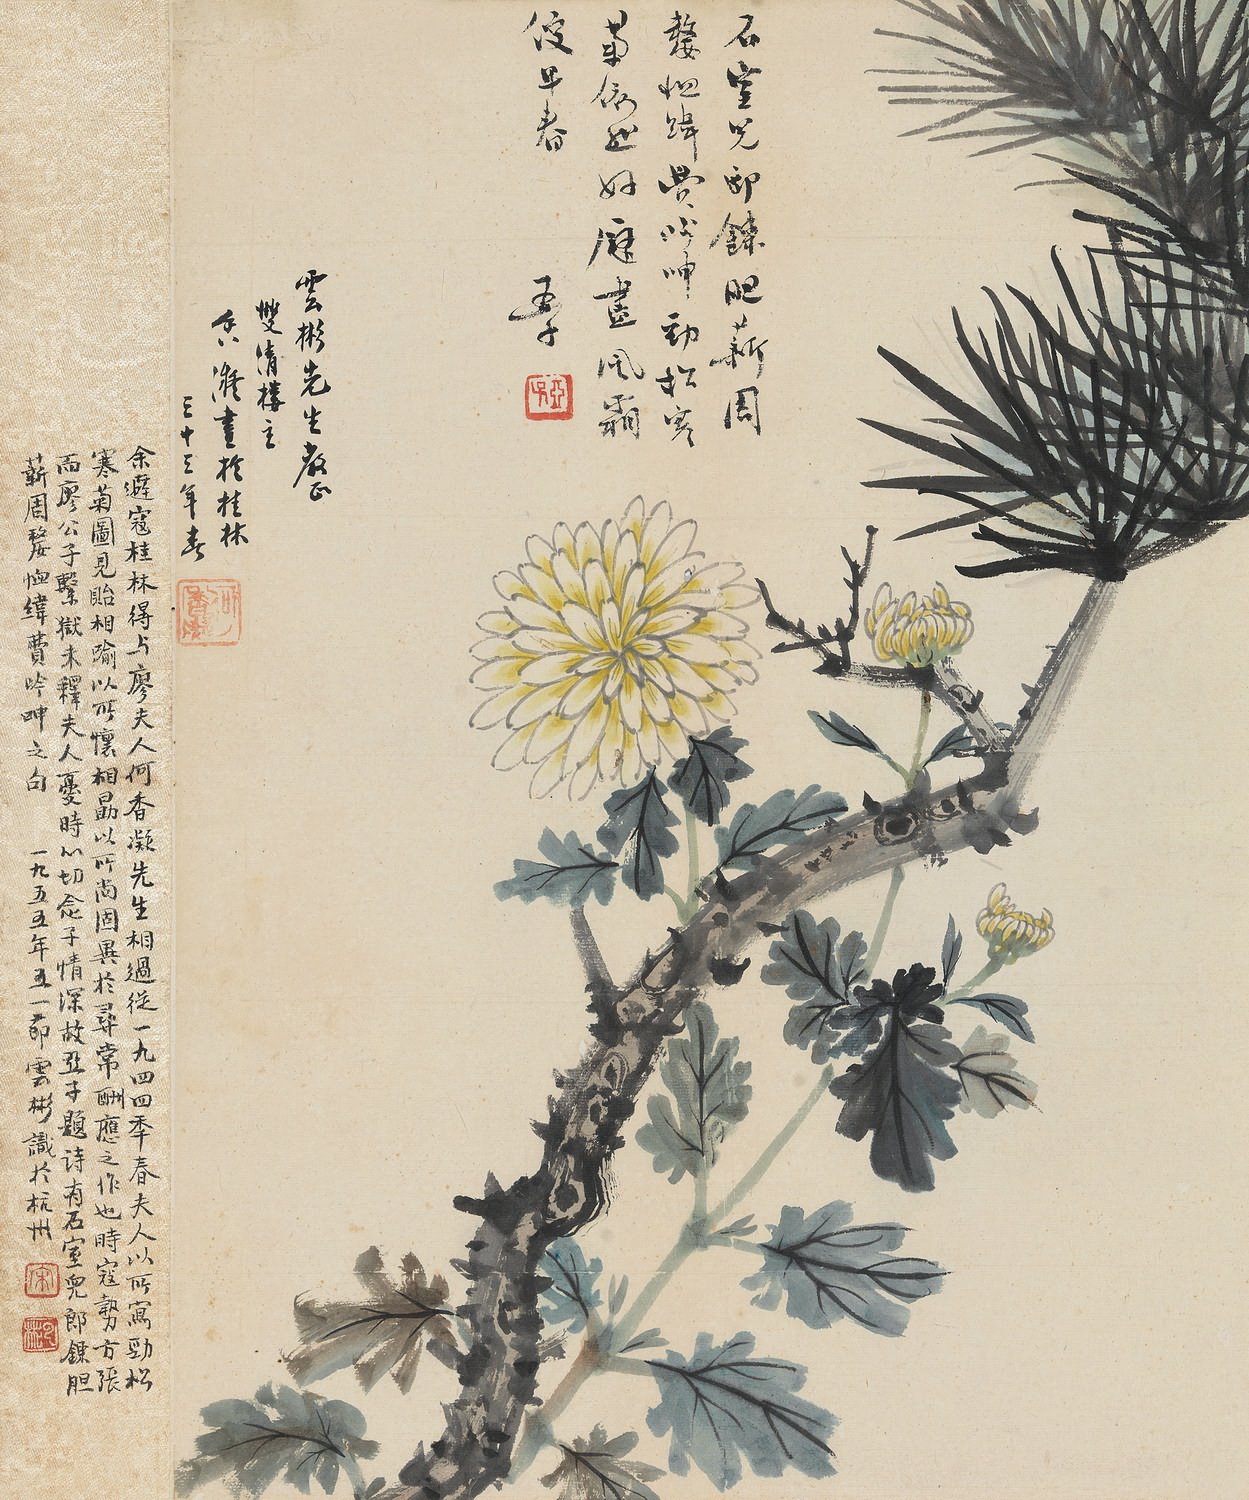 石室兒郎鍊胆薪周
嫠恤緯費吟呻勁松寒
菊依然好庭畫風霜
後早春
亞子
雲彬先生教正
雙清樓主
香凝畫於桂林
三十三年春
余避寇桂林得与廖夫人何香凝先生相過從一九四四年春夫人以所寫勁松
寒菊圖見貽相喻以所懷相勗以所尚固異於尋常酬應之作也時寇勢方張
而廖公子繫獄未釋夫人憂時心切念子情深故亞子題詩有石室兒郎鍊胆
薪周嫠恤緯費吟呻之句 一九五五年五一節雲彬識於杭州